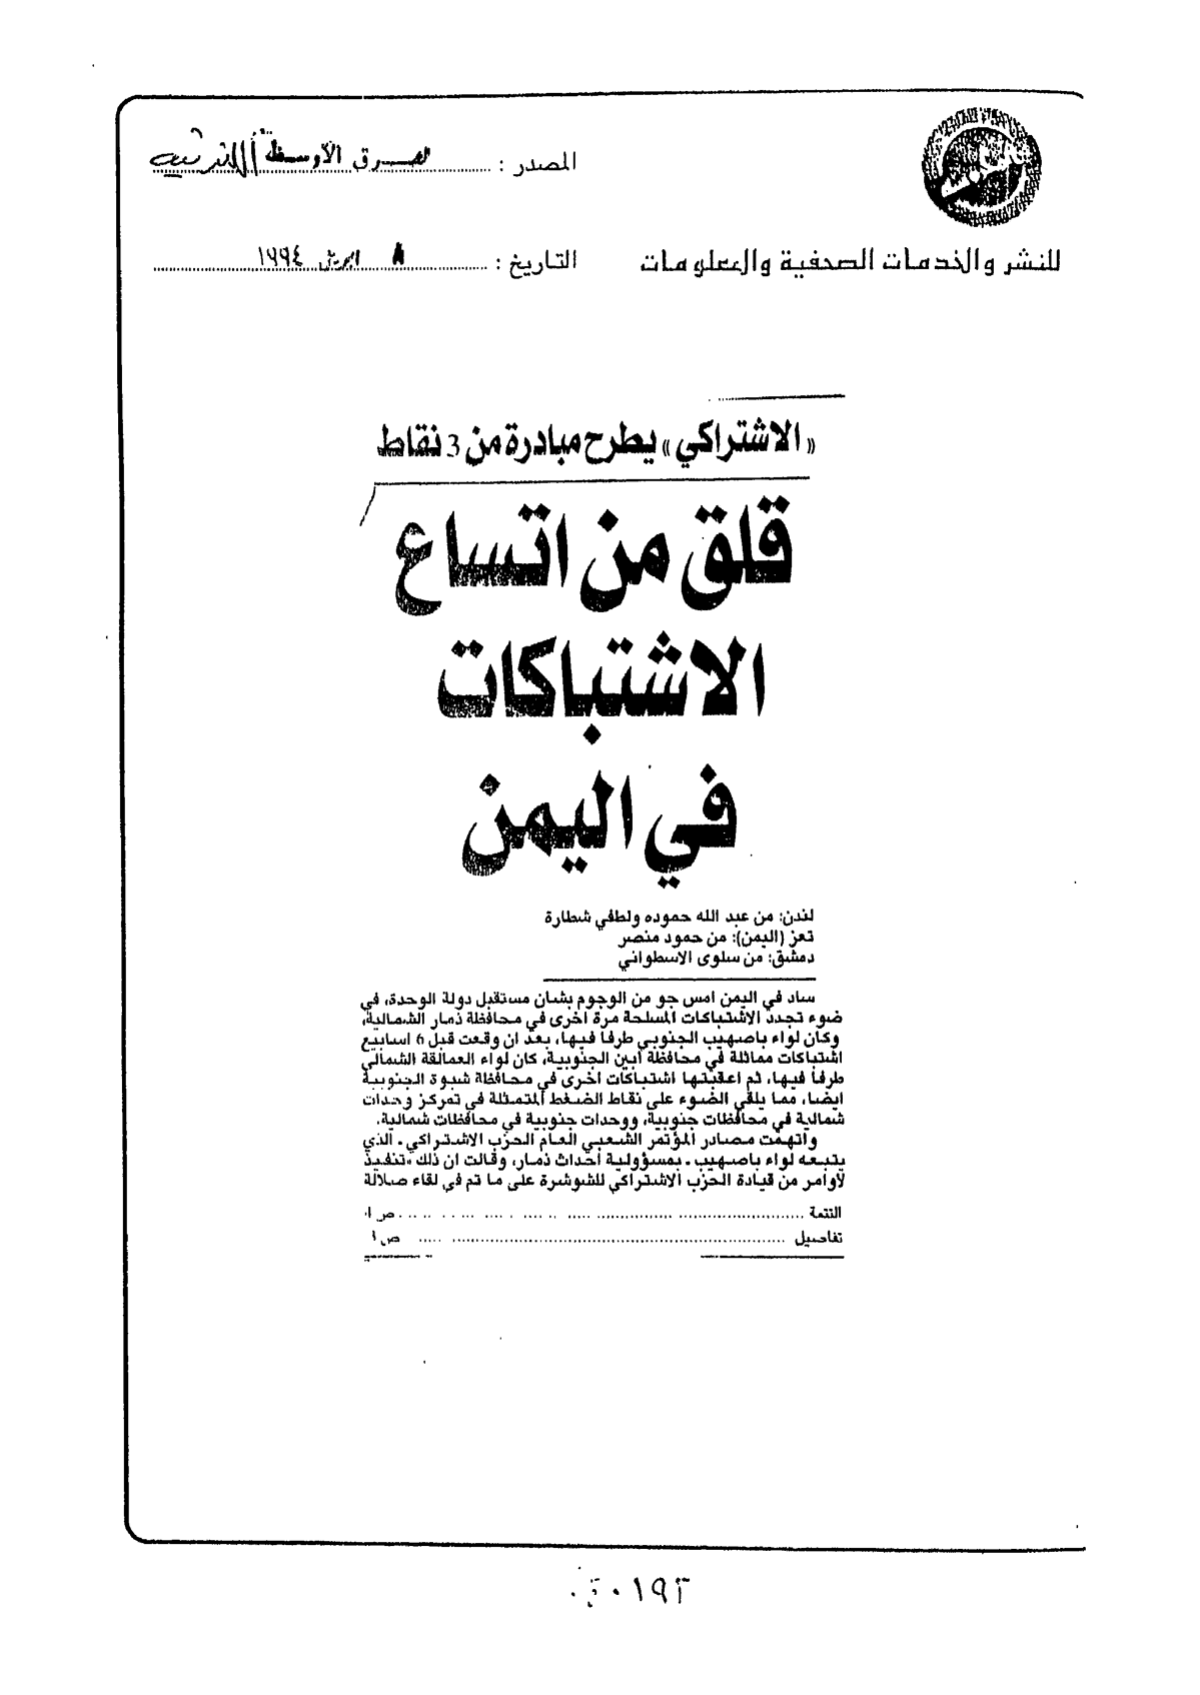 المصدر : الشرق الأوسط اللندنية
للنشر والخدمات الصحفية والمعلومات
التاريخ : ٨ ابريل ١٩٩٤
«الاشتراكي» يطرح مبادرة من 3 نقاط
قلق من اتساع
الاشتباكات
في اليمن
لندن: من عبد الله حموده ولطفي شطارة
تعز (اليمن): من حمود منصر
دمشق: من سلوى الاسطواني
ساد في اليمن امس جو من الوجوم بشان مستقبل دولة الوحدة، في
ضوء تجدد الاشتباكات المسلحة مرة اخرى في محافظة ذمار الشمالية،
وكان لواء باصهيب الجنوبي طرفا فيها، بعد ان وقعت قبل 6 اسابيع
اشتباكات مماثلة في محافظة ابين الجنوبية، كان لواء العمالقة الشمالي
طرفا فيها، ثم اعقبتها اشتباكات اخرى في محافظة شبوة الجنوبية
ايضا، مما يلقي الضوء على نقاط الضغط المتمثلة في تمركز وحدات
شمالية في محافظات جنوبية، ووحدات جنوبية في محافظات شمالية.
واتهمت مصادر المؤتمر الشعبي العام الحزب الاشتراكي ـ الذي
يتبعه لواء باصهيب ـ بمسؤولية احداث ذمار، وقالت ان ذلك «تنفيذ
لاوامر من قيادة الحزب الاشتراكي للشوشرة على ما تم في لقاء صلالة
التتمة ص
تفاصيل ص